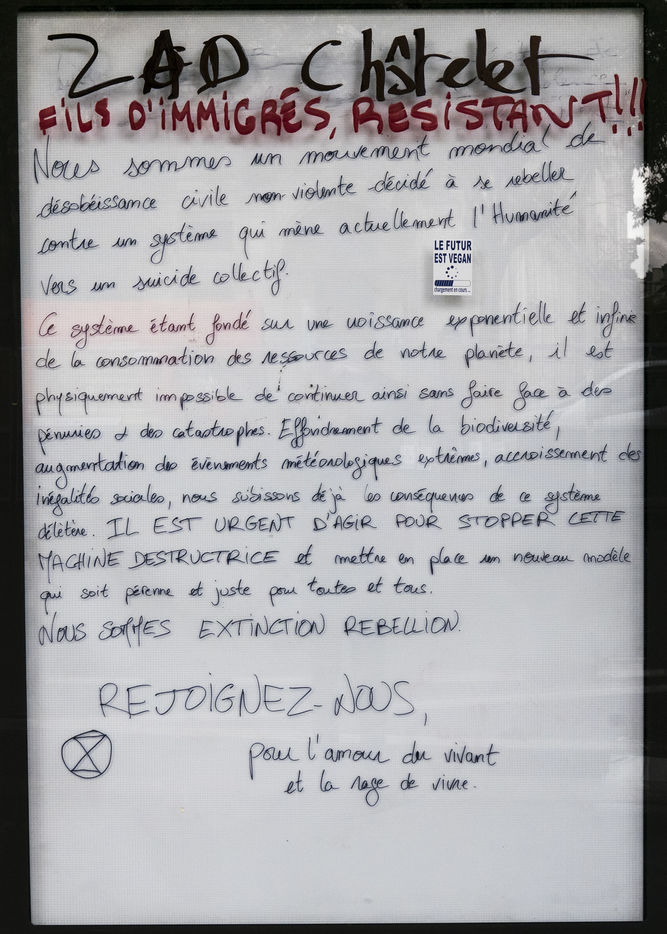 ZAD Châtelet
FILS D'IMMIGRÉS, RESISTANT!!!
Nous sommes un mouvement mondial de
désobéissance civile non violente décidé à se rebeller
contre un système qui mène actuellement l'Humanité
vers un suicide collectif.
LE FUTUR
EST VEGAN
chargement en cours ...
Ce système étant fondé sur une croissance exponentielle et infinie
de la consommation des ressources de notre planète, il est
physiquement impossible de continuer ainsi sans faire face à des
pénuries & des catastrophes. Effondrement de la biodiversité,
augmentation des évènements météorologiques extrêmes, accroissement des
inégalités sociales, nous subissons déjà les conséquences de ce système
délétère. IL EST URGENT D'AGIR POUR STOPPER CETTE
MACHINE DESTRUCTRICE et mettre en place un nouveau modèle
qui soit pérenne et juste pour toutes et tous.
NOUS SOMMES EXTINCTION REBELLION.
REJOIGNEZ-NOUS,
pour l'amour du vivant
et la rage de vivre.